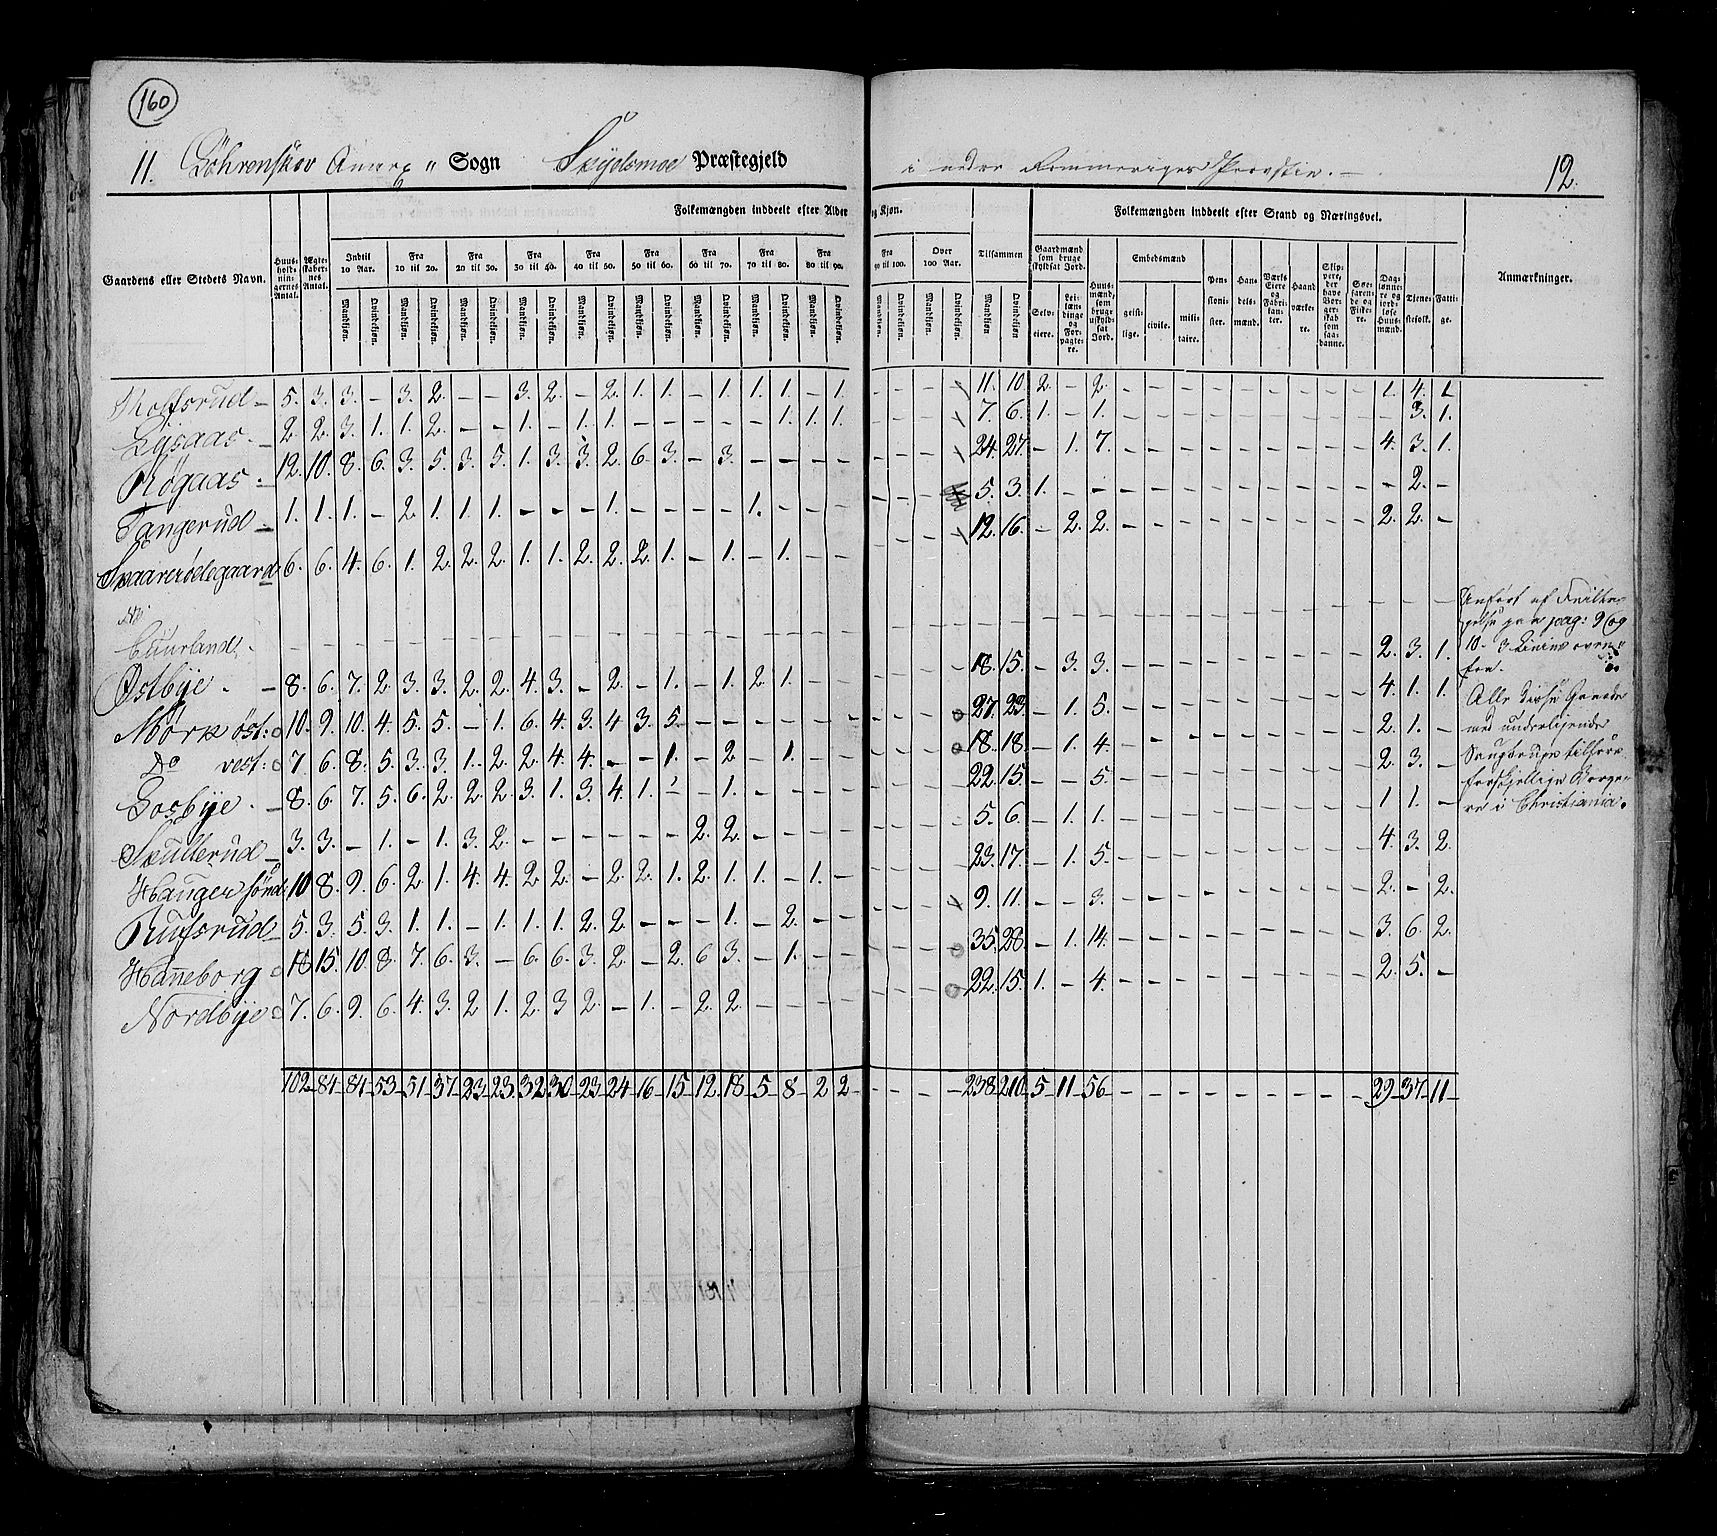 160
11. Löhrenskov Annex " Sogn Skydsmoe Præstegjeld i nedre Rommeriges Provstie. 12.
Gaardens eller Stedets Navn.
Huusholdningernes Antal.
Ægteskabernes Antal.
Folkemængden inddeelt efter Alder og Kjøn.
Indtil 10 Aar. Fra 10 til 20. Fra 20 til 30. Fra 30 til 40. Fra 40 til 50. Fra 50 til 60. Fra 60 til 70. Fra 70 til 80. Fra 80 til 90. Fra 90 til 100. Over 100 Aar. Tilsammen
Mandkjøn. Qvindekjøn.
Folkemængden inddeelt efter Stand og Næringsvei.
Gaardmænd som bruge skyldsat Jord. Selveiere. Leilændinge og Forpagtere.
Huusmænd, som bruge uskyldsat Jord.
Embedsmænd geistlige. civile. militaire.
Pensionister. Handelsmænd. Værks Eiere og Fabrikanter. Haandværkere. Skippere, der have Borgerskab som saadanne. Søefarende og Fiskere. Dagslønnere og jordløse Huusmænd. Tjenestefolk. Fattige.
Anmærkninger.
Rolfsrud – 5. 3. 3. – 3. 2. – – 3. 2. – 2. 1. 1. – 1. 1. 1. 1. – 1. – – – 11. 10. 2. – 2. – – – – – – – – – 1. 4. 1.
Lysaas. – 2. 2. 3. 1. 1. 2. – – 1. – 1. 1. – – – – – 1. 1. 1. – – – 7. 6. 1. – 1. – – – – – – – – – – 3. 1.
Røgaas – 12. 10. 8. 6. 3. 5. 3. 5. 1. 3. 3. 2. 6. 3. – 3. – – – – – – – 24. 27. – 1. 7. – – – – – – – – – 4. 3. 1.
Tangerud – 1. 1. 1. – 2. 1. 1. 1. – – – 1. – – – – 1. – – – – – – 5. 3. 1. – – – – – – – – – – – – 2. –
Svaarerødegaard 6. 6. 4. 6. 1. 2. 2. 2. 1. 1. 2. 2. 2. 1. – 1. – 1. – – – – – 12. 16. – 2. 2. – – – – – – – – – 2. 2. –
Cuurland. – – – – – – – – – – – – – – – – – – – –
Østbye. – 8. 6. 7. 2. 3. 3. 2. 2. 4. 3. – 2. – 1. – 1. 2. 1. – – – – – 18. 15. – 3. 3. – – – – – – – – – 2. 3. 1.
Mørk øst. 10. 9. 10. 4. 5. 5. – 1. 6. 4. 3. 4. 3. 5. – – – – – – – – – 27. 23. – 1. 5. – – – – – – – – – 4. 1. 1.
Do vest. 7. 6. 8. 5. 3. 3. 1. 2. 2. 4. 4. – – 1. – 2. – 1. – – – – – 18. 18. – 1. 4. – – – – – – – – – 2. 1. –
Losbye. – 8. 6. 7. 5. 6. 2. 2. 2. 3. 1. 3. 4. 1. – – 1. – – – – – – – 22. 15. – – 5. – – – – – – – – – 2. 3. –
Skullerud – 3. 3. – 1. – 1. 3. 2. – – – – – – 2. 2. – – – – – – – 5. 6. – 1. 1. – – – – – – – – – 1. 1. –
Hauger sønd. 10 8. 9. 6. 2. 1. 4. 4. 2. 2. – 2. 2. 1. 2. 1. 1. – 1. – – – – 23. 17. – 1. 5. – – – – – – – – – 4. 3. 2.
Rusrud – 5. 3. 5. 3. 1. 1. – 1. 1. 1. 2. 2. – – – 1. – 2. – – – – – 9. 11. – – 3. – – – – – – – – – 2. – 2.
Hanneborg 18 15. 10. 8. 7. 6. 3. – 6. 6. 3. 2. – 2. 6 3. – 1. – – – – – 35. 28. – 1. 14. – – – – – – – – – 3. 6. 2.
Nordbye 7. 6. 9. 6. 4. 3. 2 1. 2. 3 2. – 1. – 2. 2. – – – – – – – 22. 15. 1. – 4. – – – – – – – – – 2. 5. –
102 – 84 – 84 – 53 – 51 – 37 – 23 – 23. 32 30 – 23 – 24 – 16 – 15 12. 18 – 5 – 8 – 2 2 – – – – 238 210 – 5 – 11 – 56 – – – – – – – – – – 29 – 37 – 11 –
Anført af
pag: 9 og
10.
Alle disse Gaarde
med underliggende
tilhøre
forskjellige Borge-
re i Christiania.